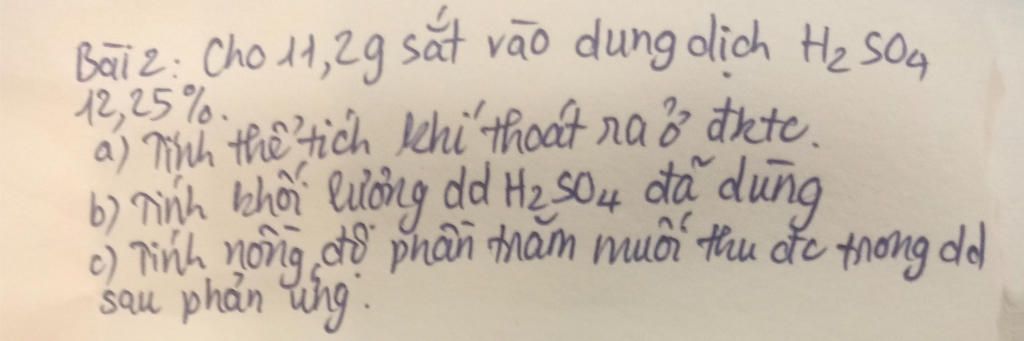 Bài 2: Cho 11,2g sắt vào dung dịch H₂SO₄
12,25%.
a) Tính thể tích khí thoát ra ở đktc.
b) Tính khối lượng dd H₂SO₄ đã dùng
c) Tính nồng độ phần trăm muối thu đc trong dd
sau phản ứng.